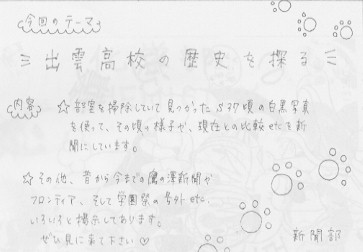 今回のテーマ
出雲高校の歴史を探る
内容
☆部室を掃除していて見つかったS37頃の白黒写真
を使って、その頃の様子や、現在との比較などを新
聞にしています。
☆その他、昔から今までの鷹の沢新聞や
フロンティア、そして学園祭の号外など、
いろいろと掲示してあります。
ぜひ見に来て下さい♡
新聞部